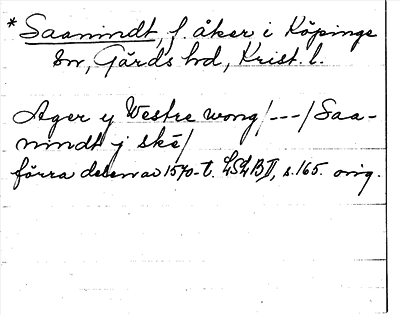 * Saanindt, f. åker i Köpinge
sn, Gärds hd, Krist. l.
Ager y Westre wong/---/Saa-
nindt y ske/
förra delen av 1570-t. LSLB II, s. 165. orig.